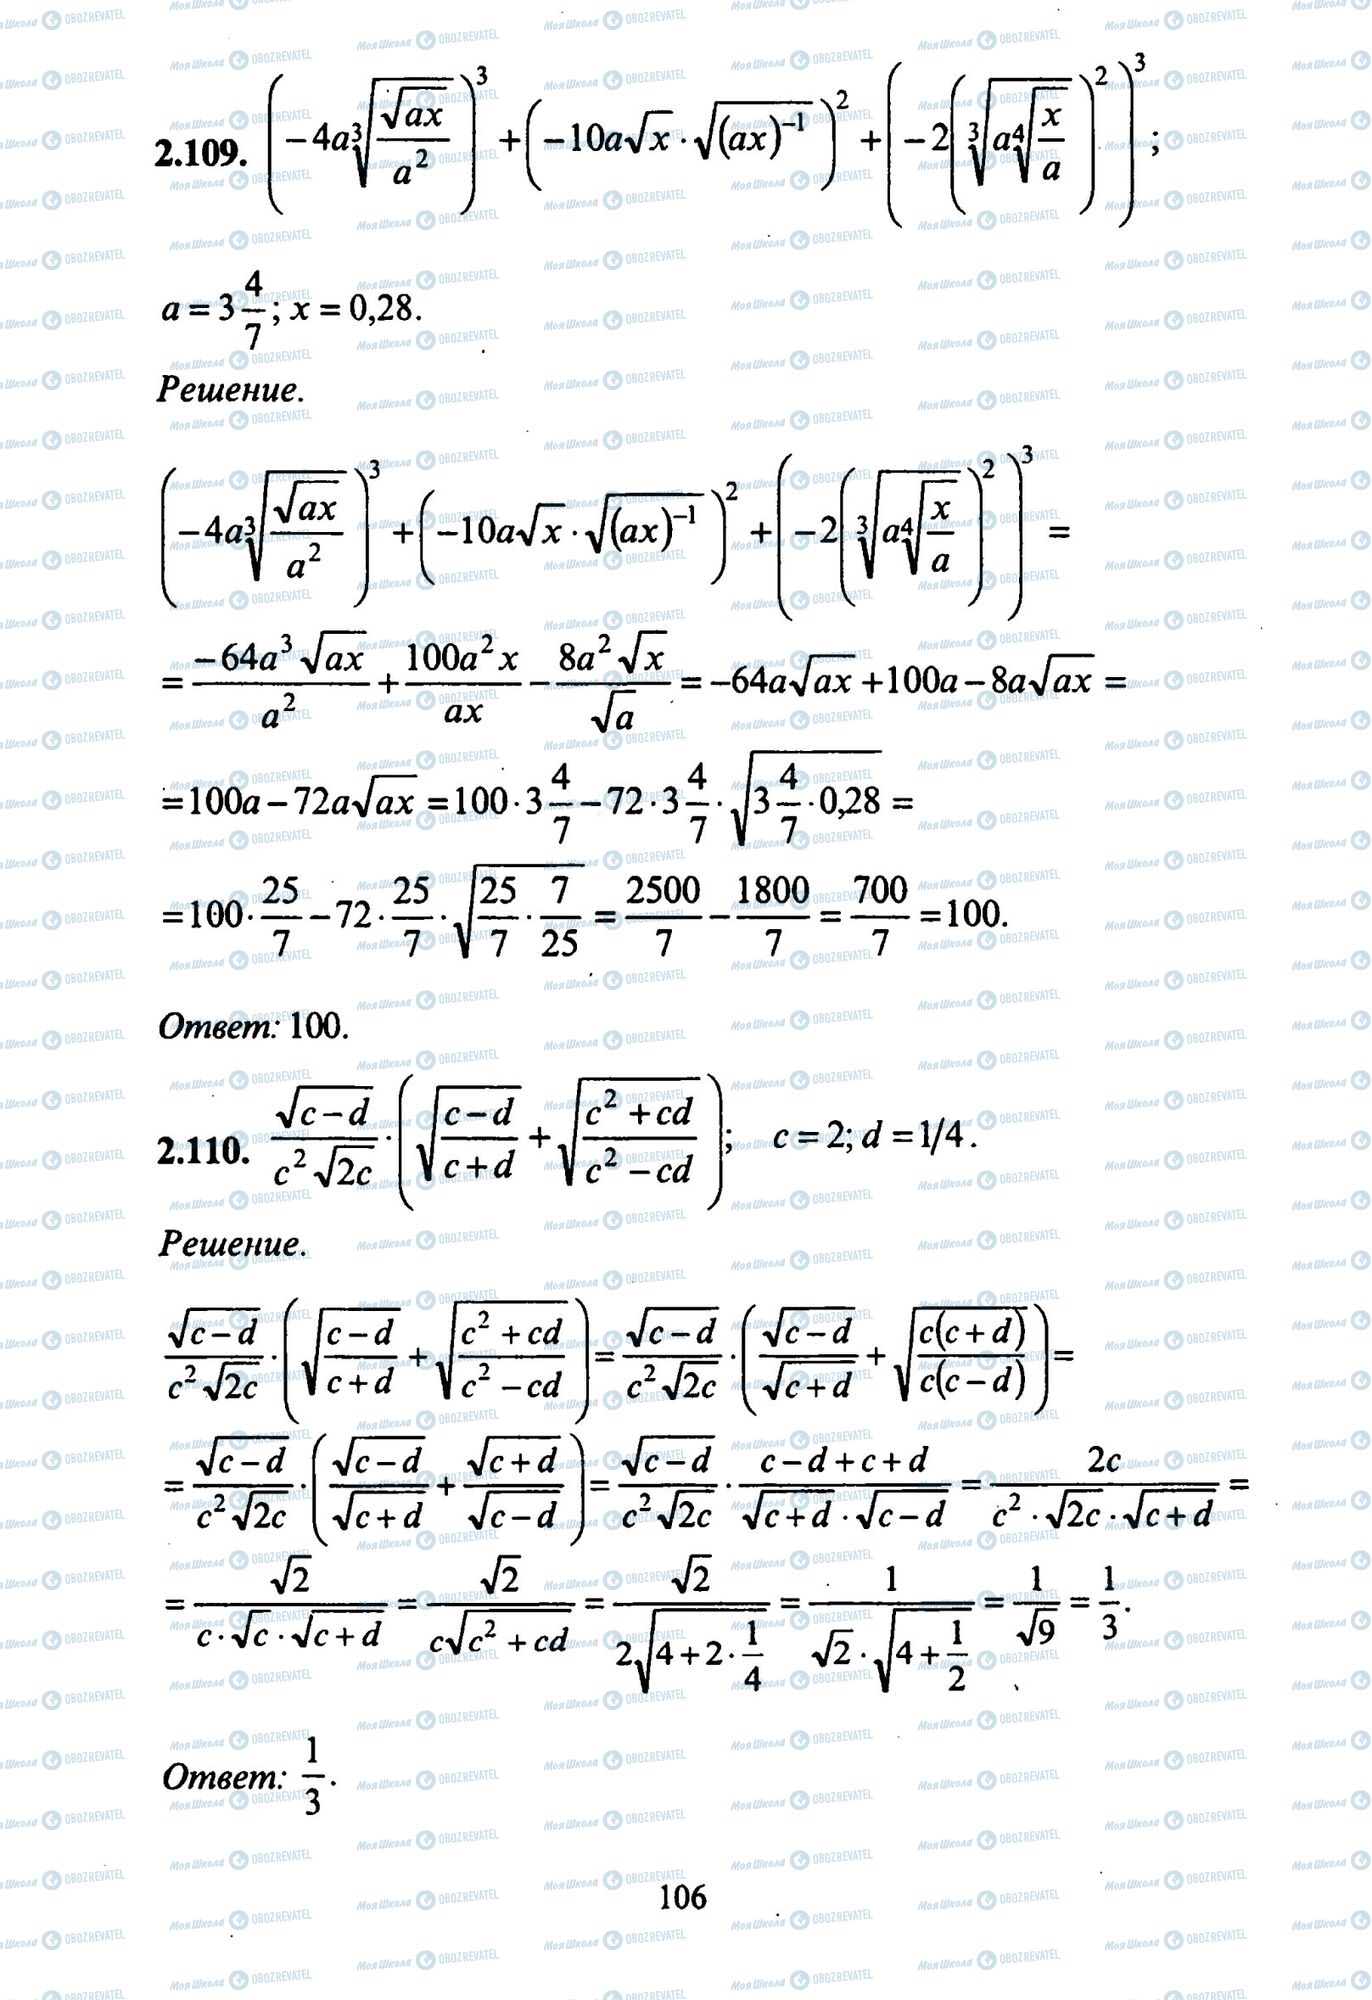 2.109. (-4a∛(√(ax)/a²))³ + (-10a√x · √((ax)⁻¹))² + (-2(∛(a⁴√(x/a)))²)³;
a = 3 4/7; x = 0,28.
Решение.
(-4a∛(√(ax)/a²))³ + (-10a√x · √((ax)⁻¹))² + (-2(∛(a⁴√(x/a)))²)³ =
= -64a³√(ax)/a² + 100a²x/ax - 8a²√x/√a = -64a√(ax) + 100a - 8a√(ax) =
= 100a - 72a√(ax) = 100 · 3 4/7 - 72 · 3 4/7 · √(3 4/7 · 0,28) =
= 100 · 25/7 - 72 · 25/7 · √(25/7 · 7/25) = 2500/7 - 1800/7 = 700/7 = 100.
Ответ: 100.
2.110. √(c-d)/(c²√(2c)) · (√((c-d)/(c+d)) + √((c²+cd)/(c²-cd))); c = 2; d = 1/4.
Решение.
√(c-d)/(c²√(2c)) · (√((c-d)/(c+d)) + √((c²+cd)/(c²-cd))) = √(c-d)/(c²√(2c)) · (√(c-d)/√(c+d) + √(c(c+d)/c(c-d))) =
= √(c-d)/(c²√(2c)) · (√(c-d)/√(c+d) + √(c+d)/√(c-d)) = √(c-d)/(c²√(2c)) · (c-d+c+d)/(√(c+d) · √(c-d)) = 2c/(c² · √(2c) · √(c+d)) =
= √2/(c · √c · √(c+d)) = √2/(c√(c²+cd)) = √2/(2√(4+2 · 1/4)) = 1/(√2 · √(4+1/2)) = 1/√9 = 1/3.
Ответ: 1/3.
106